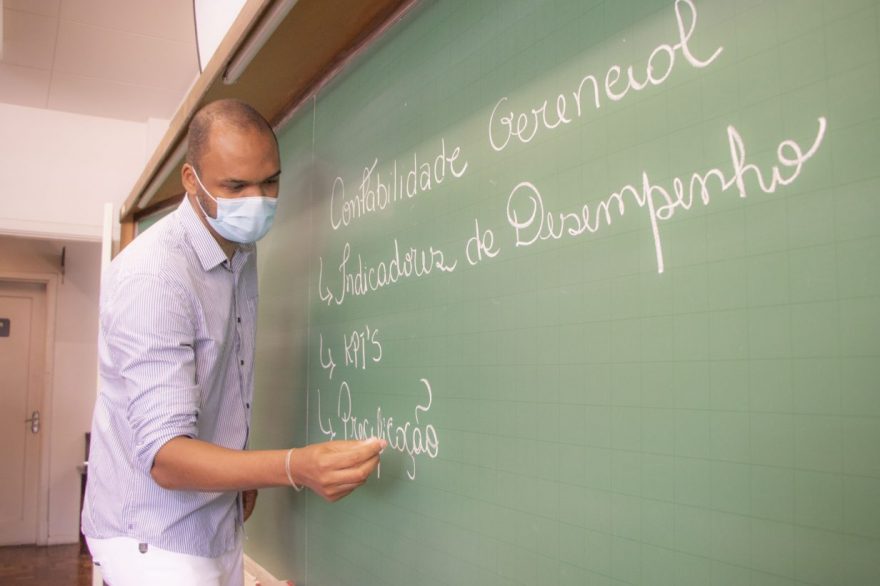 Contabilidade Gerencial
↳ Indicadores de Desempenho
↳ KPI'S
↳ Precificação